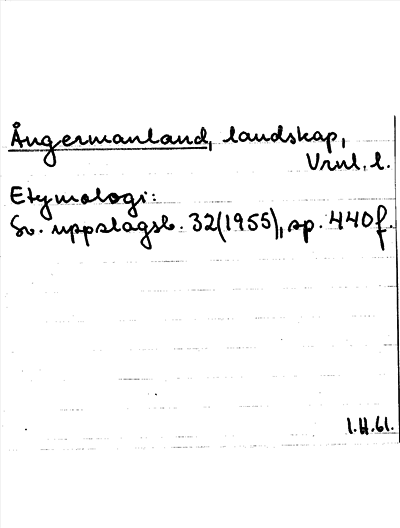 Ångermanland, landskap,
Vrnl. l.
Etymologi:
Sv. uppslagsb. 32(1955), sp. 440f.
1.H.61.